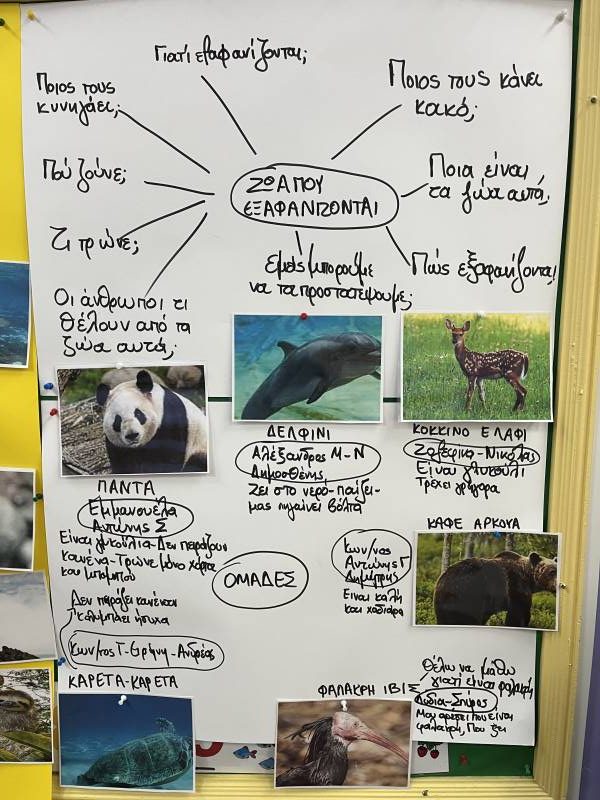 Γιατί εξαφανίζονται;
Ποιος τους
κυνηγάει;
Ποιος τους κάνει
κακό;
Πού ζούνε;
ΖΩΑ ΠΟΥ
ΕΞΑΦΑΝΙΖΟΝΤΑΙ
Ποια είναι
τα ζώα αυτά;
Τι τρώνε;
Εμείς μπορούμε
να τα προστατέψουμε;
Πώς εξαφανίζονται;
Οι άνθρωποι τι
θέλουν από τα
ζώα αυτά;
ΔΕΛΦΙΝΙ
Αλέξανδρος Μ-Ν
Δημοσθένης
Ζει στο νερό-παίζει-
μας πηγαίνει βόλτα
ΚΟΚΚΙΝΟ ΕΛΑΦΙ
Ζαφειρία-Νικόλας
Είναι γλυκούλι
Τρέχει γρήγορα
ΠΑΝΤΑ
Εμμανουέλα
Αντώνης Σ
Είναι γλυκούλια-Δεν πειράζουν
κανένα-Τρώνε μόνο χόρτα
και μπαμπού
ΟΜΑΔΕΣ
ΚΑΦΕ ΑΡΚΟΥΔΑ
Κων/νος
Αντώνης Γ
Δημήτρης
Είναι καλή
και χαδιάρα
Δεν πειράζει κανέναν
Κολυμπάει ήσυχα
Κων/νος Τ-Ειρήνη-Ανδρέας
ΚΑΡΕΤΑ-ΚΑΡΕΤΑ
ΦΑΛΑΚΡΗ ΙΒΙΣ
Θέλω να μάθω
γιατί είναι φαλακρή
Λυδία-Σπύρος
Μου αρέσει που είναι
φαλακρή, Που ζει